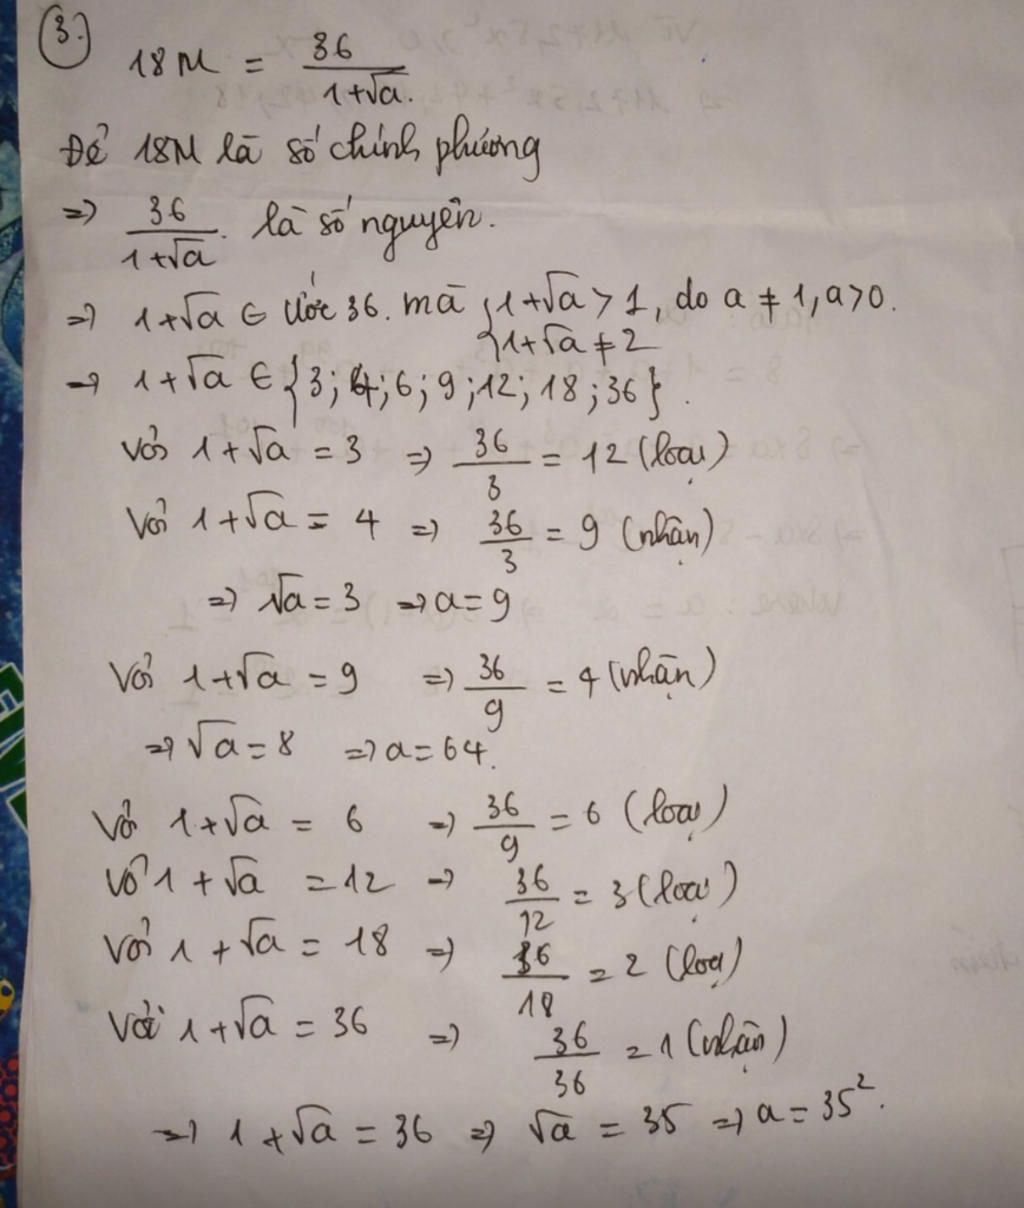 3.
18M = 36/(1+√a.)
Để 18M là số chính phương
=> 36/(1+√a). là số nguyên.
=> 1+√a ∈ Ước 36. mà { 1+√a > 1, do a ≠ 1, a>0.
1+√a ≠ 2
=> 1+√a ∈ {3; 4; 6; 9; 12; 18; 36}.
Với 1+√a = 3 => 36/3 = 12 (loại)
Với 1+√a = 4 => 36/3 = 9 (nhận)
=> √a = 3 => a = 9
Với 1+√a = 9 => 36/9 = 4 (nhận)
=> √a = 8 => a = 64.
Với 1+√a = 6 => 36/9 = 6 (loại)
Với 1+√a = 12 => 36/12 = 3 (loại)
Với 1+√a = 18 => 36/18 = 2 (loại)
Với 1+√a = 36 => 36/36 = 1 (nhận)
=> 1+√a = 36 => √a = 35 => a = 35².